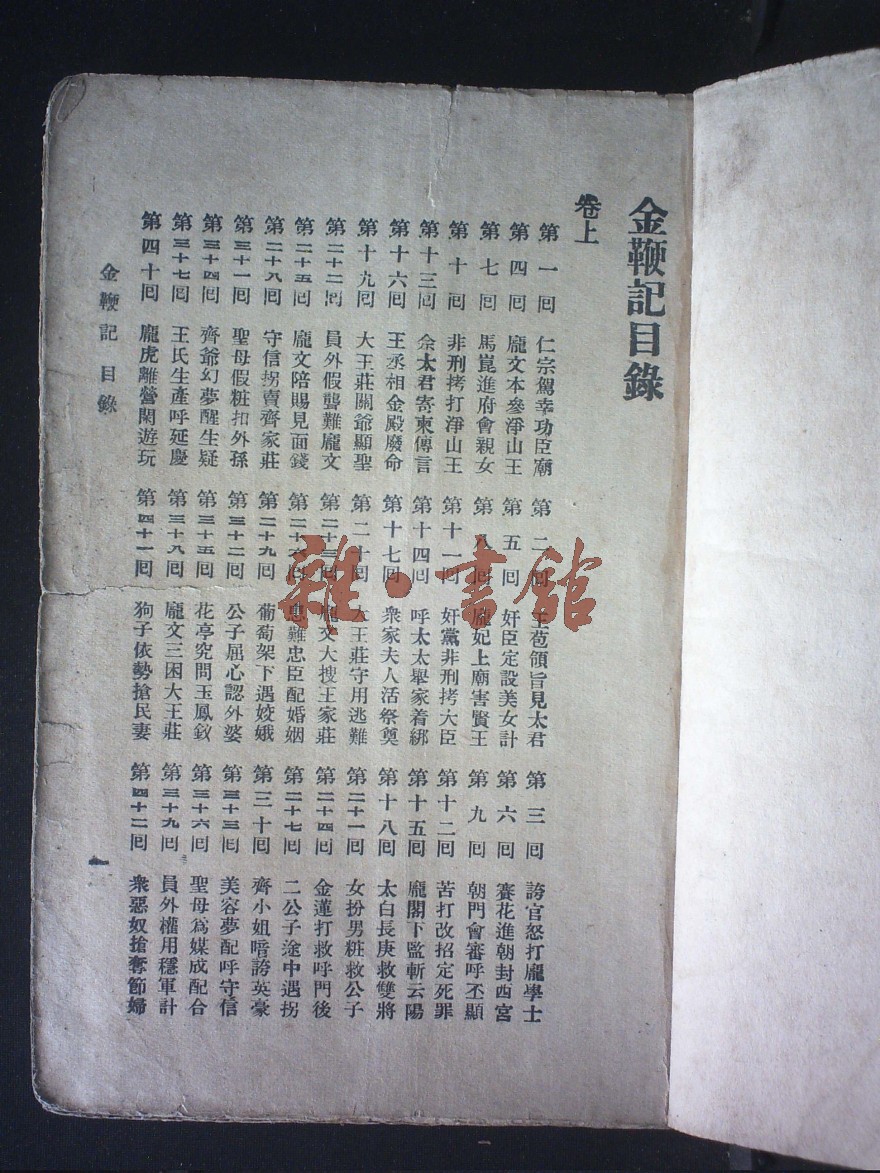 金鞭記目錄
卷上
第一回 仁宗駕幸功臣廟 第二回 王苞領旨見太君 第三回 誇官怒打龐學士
第四回 龐文本參淨山王 第五回 奸臣定設美女計 第六回 賽花進朝封西宮
第七回 馬崑進府會親女 第八回 龐妃上廟害賢王 第九回 朝門會審呼丕顯
第十回 非刑拷打淨山王 第十一回 奸黨非刑拷大臣 第十二回 苦打改招定死罪
第十三回 余太君寄柬傳言 第十四回 呼太太舉家着綁 第十五回 龐閣下監斬云陽
第十六回 王丞相金殿廢命 第十七回 衆家夫人活祭奠 第十八回 太白長庚救雙將
第十九回 大王莊關爺顯聖 第二十回 大王莊守用逃難 第二十一回 女扮男粧救公子
第二十二回 員外假聾難龐文 第二十三回 龐文大搜王家莊 第二十四回 金蓮打救呼門後
第二十五回 龐文陪賜見面錢 第二十六回 患難忠臣配婚姻 第二十七回 二公子途中遇拐
第二十八回 守信拐賣齊家莊 第二十九回 葡萄架下遇姣娥 第三十回 齊小姐暗誇英豪
第三十一回 聖母假粧扣外孫 第三十二回 公子屈心認外婆 第三十三回 美容夢配呼守信
第三十四回 齊爺幻夢醒生疑 第三十五回 花亭究問玉鳳釵 第三十六回 聖母爲媒成配合
第三十七回 王氏生產呼延慶 第三十八回 龐文三困大王莊 第三十九回 員外權用穩軍計
第四十回 龐虎離營閑遊玩 第四十一回 狗子依勢搶民妻 第四十二回 衆惡奴搶奪節婦
金鞭記 目錄
雜·書館